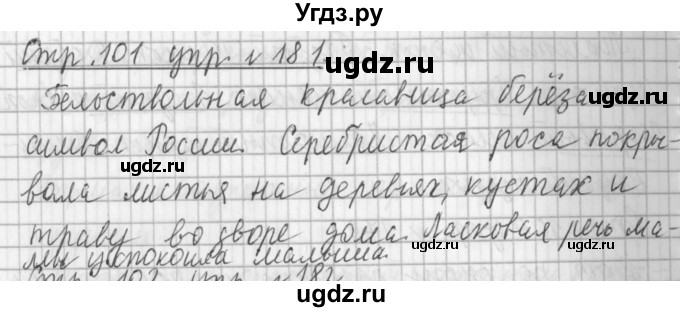 Угдз.ру
Стр. 101 упр. № 181.
ugdz.ru
ugdz.ru
Бельствольная красавица берёза
символ России. Серебристая роса покры-
ugdz.ru
ugdz.ru
вала листья на деревьях, кустах и
траву во дворе дома. Ласковая речь ма-
ugdz.ru
ugdz.ru
мы успокоила малыша.
Стр 102 упр. №182
ugdz.ru